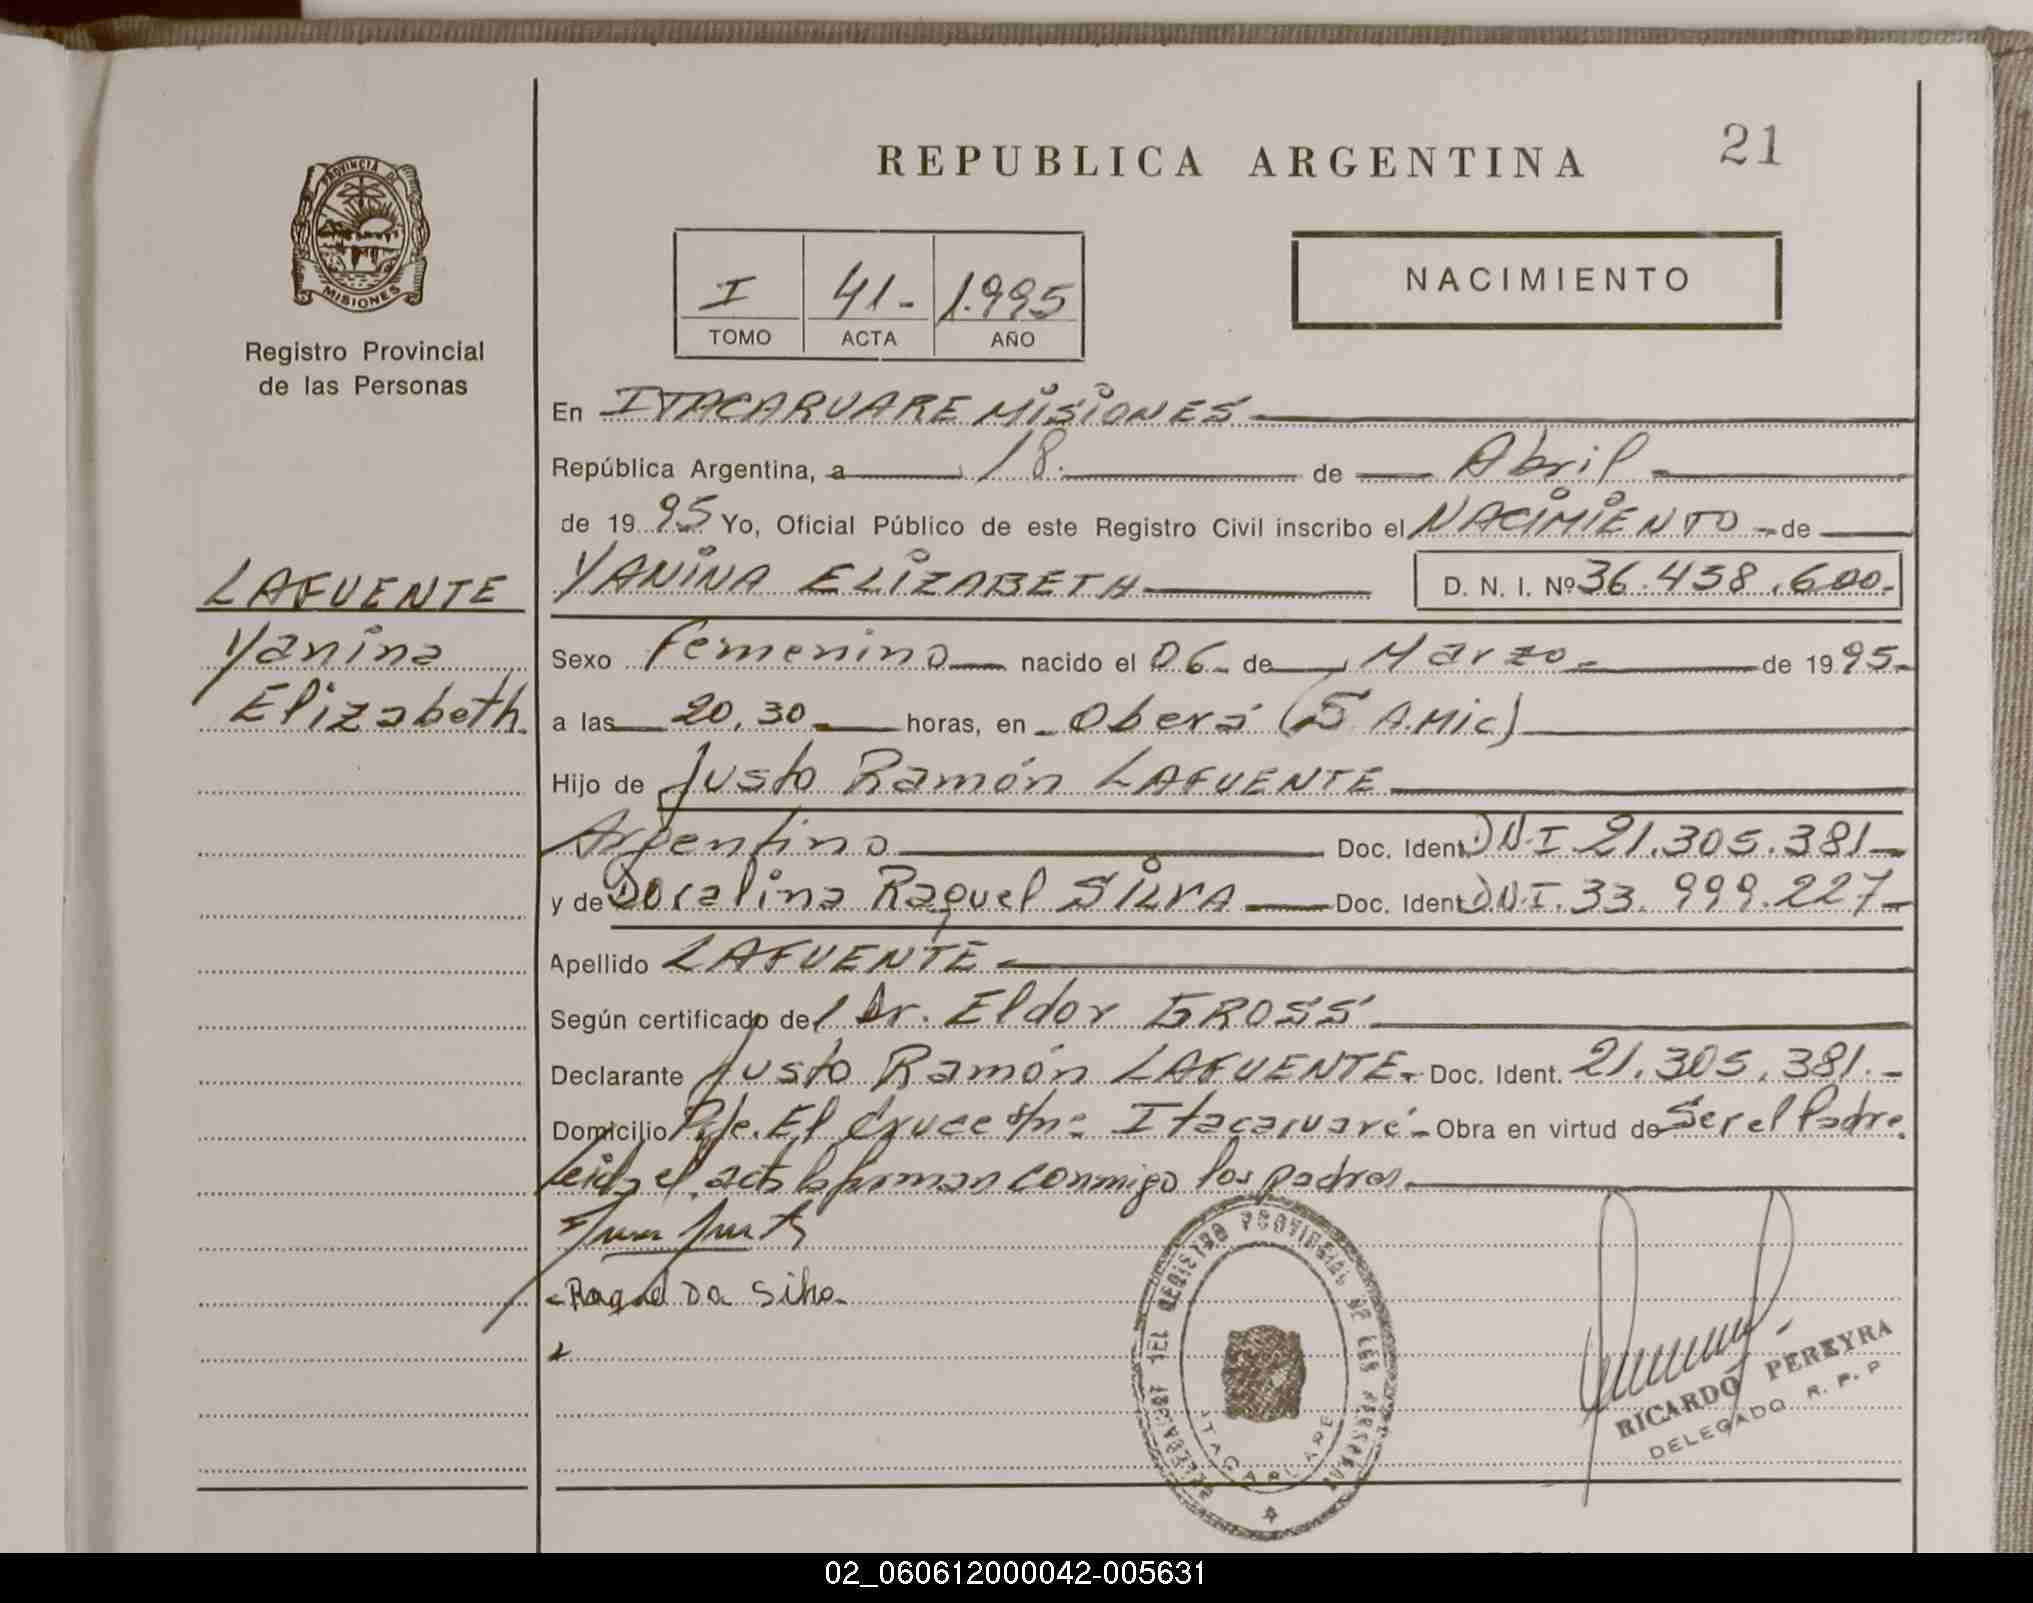 REPUBLICA ARGENTINA
21
PROVINCIA DE
MISIONES
Registro Provincial
de las Personas
I 41- 1.995
TOMO ACTA AÑO
NACIMIENTO
En ITACARUARE MISIONES
República Argentina, a 18. de Abril
de 1995 Yo, Oficial Público de este Registro Civil inscribo el NACIMIENTO de
YANINA ELIZABETH D. N. I. Nº 36.438.600.-
LAFUENTE
Yanina
Elizabeth.
Sexo Femenino nacido el 06 de Marzo de 1995.
a las 20,30 horas, en Oberá (S.A.Mic)
Hijo de Justo Ramón LAFUENTE
Argentino Doc. Ident. DNI 21.305.381
y de Doralina Raquel SILVA Doc. Ident. D.N.I. 33.999.227
Apellido LAFUENTE
Según certificado del Dr. Eldor GROSS
Declarante Justo Ramón LAFUENTE. Doc. Ident. 21.305.381.-
Domicilio Pje. El Cruce s/nº Itacaruaré Obra en virtud de Ser el Padre.
leida el acta la firman conmigo los padres.
Raquel Da Silva
REGISTRO PROVINCIAL DE LAS PERSONAS
ITACARUARE
RICARDO PEREYRA
DELEGADO R. P. P
02_060612000042-005631